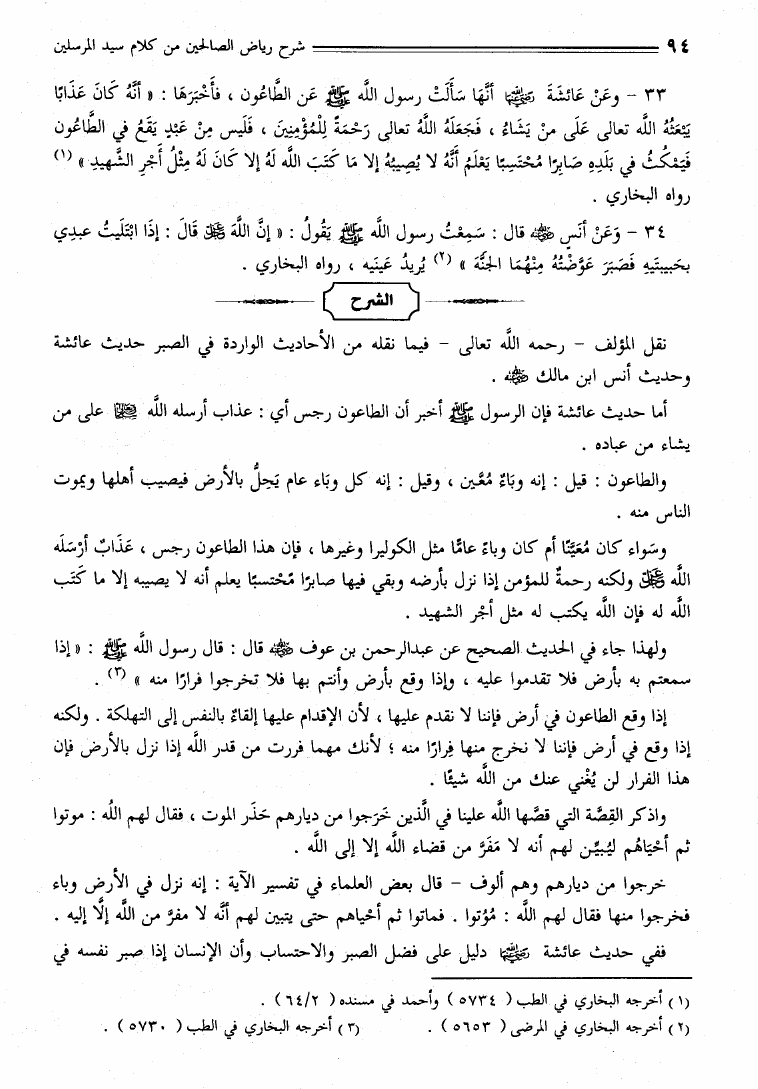 ٩٤ شرح رياض الصالحين من كلام سيد المرسلين
٣٣ - وعَنْ عَائشَةَ رضي الله عنها أنَّهَا سَأَلَتْ رسول اللَّه ﷺ عَن الطَّاعُون ، فَأَخْبَرَهَا : « أنَّهُ كَانَ عَذَابًا
يَبْعَثُهُ اللَّه تعالى عَلَى منْ يَشَاءُ ، فَجَعَلَهُ اللَّهُ تعالى رَحْمَةً لِلْمُؤْمِنِينَ ، فَلَيس مِنْ عَبْدٍ يَقَعُ في الطَّاعُون
فَيَمْكُثُ في بَلَدِهِ صَابِرًا مُحْتَسِبًا يَعْلَمُ أنَّهُ لا يُصِيبُهُ إلا مَا كَتَبَ اللَّه لَهُ إلا كَانَ لَهُ مِثْلُ أَجْرِ الشَّهِيدِ » (١)
رواه البخاري .
٣٤ - وَعَنْ أنَسٍ رضي الله عنه قال : سَمِعْتُ رسول اللَّه ﷺ يَقُولُ : « إنَّ اللَّهَ عز وجل قَالَ : إذَا ابْتَلَيتُ عبدِي
بحَبيبتَيهِ فَصَبَرَ عَوَّضْتُهُ مِنْهُمَا الجَنَّةَ » (٢) يُريدُ عَينَيه ، رواه البخاري .
الشرح
نقل المؤلف - رحمه اللَّه تعالى - فيما نقله من الأحاديث الواردة في الصبر حديث عائشة
وحديث أنس ابن مالك رضي الله عنه .
أما حديث عائشة فإن الرسول ﷺ أخبر أن الطاعون رجس أي : عذاب أرسله اللَّه عز وجل على من
يشاء من عباده .
والطاعون : قيل : إنه وبَاءٌ مُعَّين ، وقيل : إنه كل وبَاء عام يَحِلُّ بالأرض فيصيب أهلها ويموت
الناس منه .
وسَواء كان مُعَيَّنًا أم كان وباءً عامًّا مثل الكوليرا وغيرها ، فإن هذا الطاعون رجس ، عَذَابٌ أرْسَلَه
اللَّه عز وجل ولكنه رحمةٌ للمؤمن إذا نزل بأرضه وبقي فيها صابرًا مُحْتسبًا يعلم أنه لا يصيبه إلا ما كَتَب
اللَّه له فإن اللَّه يكتب له مثل أجْر الشهيد .
ولهذا جاء في الحديث الصحيح عن عبدالرحمن بن عوف رضي الله عنه قال : قال رسول اللَّه ﷺ : « إذا
سمعتم به بأرض فلا تقدموا عليه ، وإذا وقع بأرض وأنتم بها فلا تخرجوا فرارًا منه » (٣) .
إذا وقع الطاعون في أرض فإننا لا نقدم عليها ، لأن الإقدام عليها إلقاءٌ بالنفس إلى التهلكة . ولكنه
إذا وقع في أرض فإننا لا نخرج منها فِرارًا منه ؛ لأنك مهما فررت من قدر اللَّه إذا نزل بالأرض فإن
هذا الفرار لن يُغْني عنك من اللَّه شيئًا .
واذكر القِصَّة التي قصَّها اللَّه علينا في الَّذين خَرَجوا من ديارهم حَذَر الموت ، فقال لهم اللَّه : موتوا
ثم أحْيَاهُم ليُبيِّن لهم أنه لا مَفَرَّ من قضاء اللَّه إلا إلى اللَّه .
خرجوا من ديارهم وهم ألوف - قال بعض العلماء في تفسير الآية : إنه نزل في الأرض وباء
فخرجوا منها فقال لهم اللَّه : مُوُتوا . فماتوا ثم أحْياهم حتى يتبين لهم أنَّه لا مفرَّ من اللَّه إلَّا إليه .
ففي حديث عائشة رضي الله عنها دليل على فضل الصبر والاحتساب وأن الإنسان إذا صبر نفسه في
(١) أخرجه البخاري في الطب ( ٥٧٣٤ ) وأحمد في مسنده ( ٦٤/٢ ) .
(٢) أخرجه البخاري في المرضى ( ٥٦٥٣ ) . (٣) أخرجه البخاري في الطب ( ٥٧٣٠ ) .